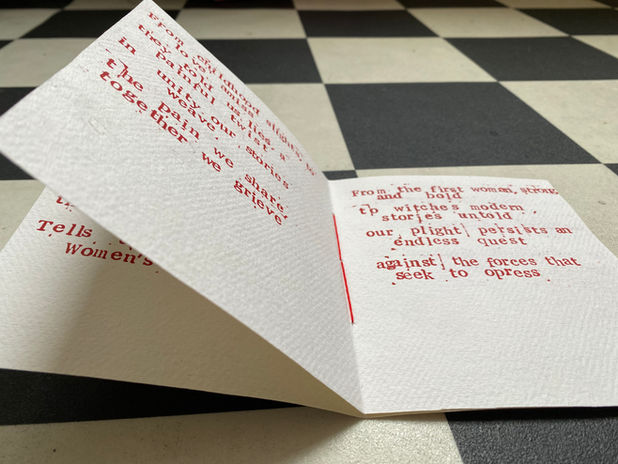 From childhood slights, to
they told lies
in painful twist a
unity our stories
weave.
the pain we share,
together we grieve
Tells
Women's
From the first woman, strong
and bold
tp witches modern
stories untold
our plight persists an
endless quest
against the forces that
seek to opress